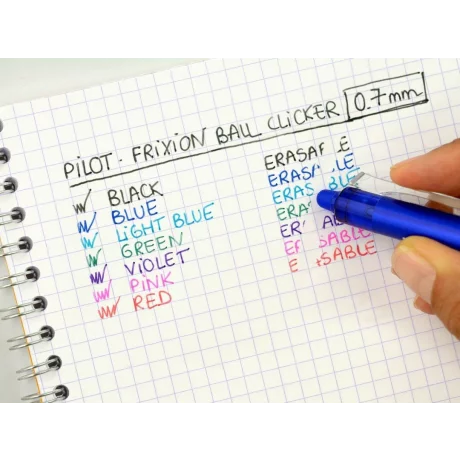 PiLOT - FRiXiON BALL CLiCKER 0.7mm
BLACK
BLUE
LiGHT BLUE
GREEN
ViOLET
PiNK
RED
ERASA E
ERASA LE
ERAS BLE
ERA
ER AB
EF SABLE
E SABLE